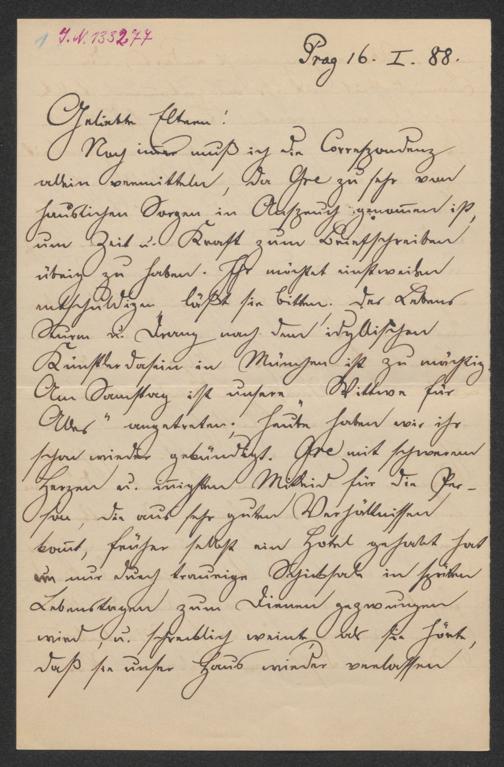 1 J.N. 133277
Prag 16. I. 88.
Geliebte Eltern!
Noch immer muß ich die Correspondenz
allein vermitteln, da Gre zu sehr von
häuslichen Sorgen in Anspruch genommen ist,
um Zeit u. Kraft zum Briefschreiben
übrig zu haben. Ihr möchtet einstweilen
entschuldigen läßt sie bitten. Des Lebens
Sturm u. Drang nach dem idyllischen
Künstlerdasein in München ist zu mächtig.
Am Samstag ist unsere "Wittwe für
Alles" angetreten; heute haben wir ihr
schon wieder gekündigt. Gre mit schwerem
Herzen u. innigstem Mitleid für die Per-
son, die aus sehr guten Verhältnissen
kommt, früher selbst ein Hotel gehabt hat
nur durch traurige Schicksale in späten
Lebenstagen zum Dienen gezwungen
wird, u. schrecklich weinte, als sie hörte,
daß sie unser Haus wieder verlassen